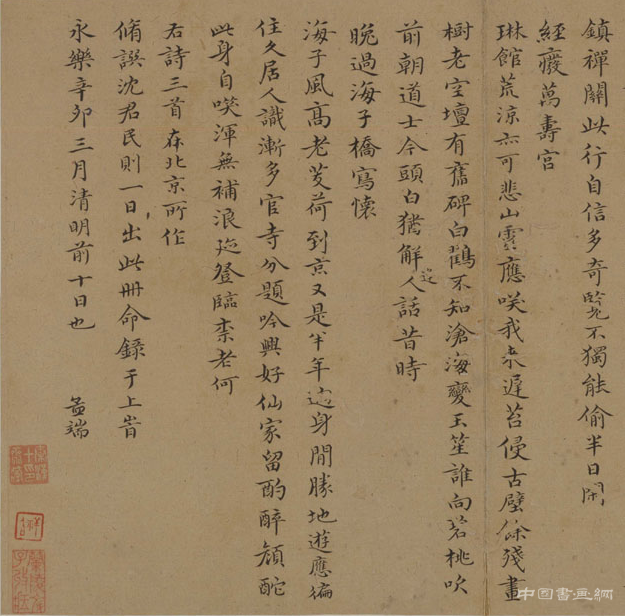 鎮禪關此行自信多奇覽不獨能偷半日閒
經廢萬壽宮
琳館荒涼亦可悲山靈應咲我來遲苔侵古壁餘殘畫
樹老空壇有舊碑白鶴不知滄海變玉笙誰向碧桃吹
前朝道士今頭白猶解逢人話昔時
晚過海子橋寫懷
海子風高老芰荷到京又是半年過身閒勝地遊應徧
住久居人識漸多官寺分題吟興好仙家留酌醉顏酡
此身自咲渾無補浪跡登臨柰老何
右詩三首在北京所作
脩譔沈君民則一日出此冊命錄于上旹
永樂辛卯三月清明前十日也
孟端
中国書画網